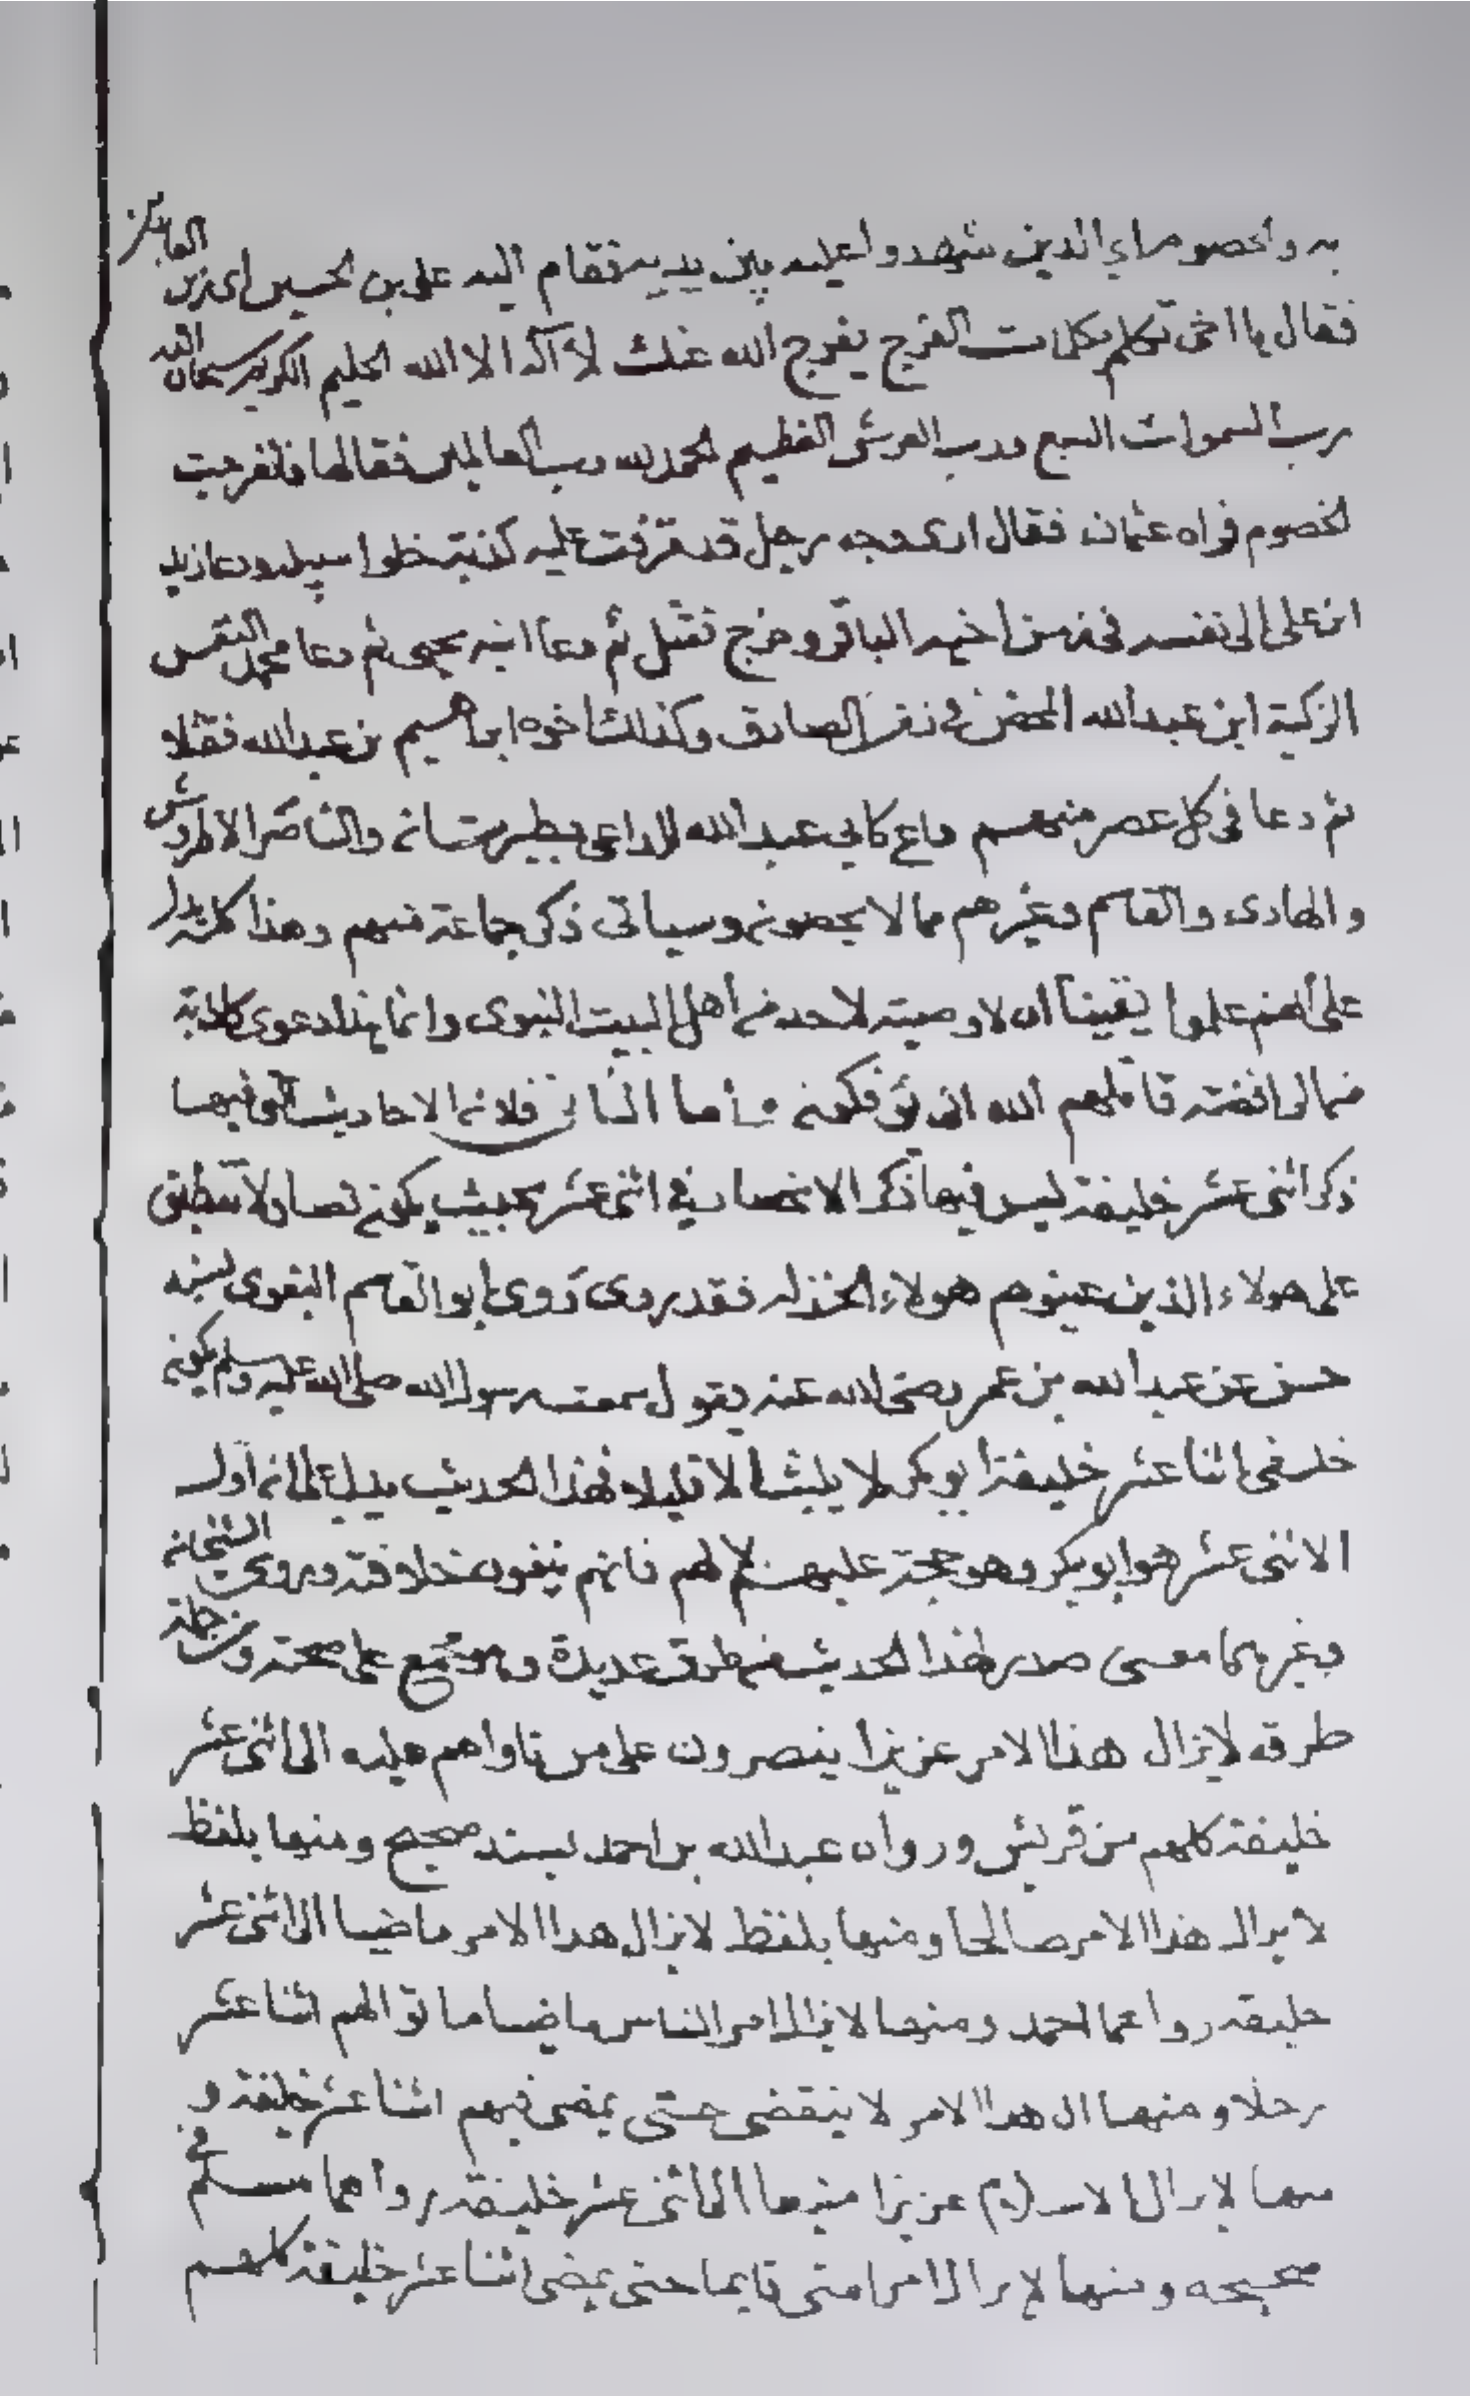 به والخصوم اي الذين شهدوا عليه بين يديه فقام اليه على بن الحسين اى زين العابدين
فقال يا اخى تكلم بكلمات الفرج يفرج الله عنك لا آله الا الله الحليم الكريم سبحان الله
رب السموات السبع ورب العرش العظيم الحمد لله رب العالمين فقالها فانفرجت
الخصوم فراه عثمان فقال ارى وجه رجل قد قرفت عليه كذبة خلوا سبيله ودعا زيد
ابن على الى نفسه فى زمن اخيه الباقر وخرج فقتل ثم دعا ابنه يحيى ثم دعا محمد النفس
الزكية ابن عبد الله المحض فى زمن الصادق وكذلك اخوه ابراهيم بن عبد الله فقتلا
ثم دعا فى كل عصر منهم داع كابى عبد الله الداعى بطبرستان والناصر الاطروش
والهادى والقاسم وغيرهم مما لا يحصون وسياتى ذكر جماعة منهم وهذا كله يدل
على انهم علموا يقينا ان لا وصية لاحد من أهل البيت النبوى وانما هذا دعوى كاذبة
من الرافضة قاتلهم الله انى يؤفكون وأما الثانى فلانما الاحاديث التى فيها
ذكر اثنى عشر خليفة ليس فيها ذكر الانحصار فى اثنى عشر بحيث يكون نصا ولا تنطبق
على هولاء الذين عينوهم هولاء الخذله فقد روى روى ابو القاسم البغوى بسند
حسن عن عبد الله بن عمر رضى الله عنه يقول سمعت رسول الله صلى الله عليه وسلم يكون
خلفى اثنا عشر خليفة أبو بكر لا يلبث الا قليلا فهذا الحديث يدل على انه أول
الاثنى عشر هو ابو بكر وهو حجة عليهم لا لهم فانهم ينفون خلافته وروى الشيخان
وغيرهما معنى صدر هذا الحديث من طرق عديدة وهو مجمع على صحته ومن جملة
طرقه لا يزال هذا الامر عزيزا ينصرون على من ناواهم عليه الى اثنى عشر
خليفة كلهم من قريش ورواه عبد الله بن احمد بسند صحيح ومنها بلفظ
لا يزال هذا الامر صالحا ومنها بلفظ لا يزال هذا الامر ماضيا الى اثنى عشر
خليفه رواهما احمد ومنها لا يزال امر الناس ماضيا ما توالهم اثنا عشر
رجلا ومنها ان هذا الامر لا ينقضى حتى يمضى فيهم اثنا عشر خليفة و
منها لا يزال الاسلام عزيزا منيعا الى اثنى عشر خليفة رواهما مسلم فى
صحيحه ومنها لا يزال امر امتى قايما حتى يمضى اثنا عشر خليفة كلهم